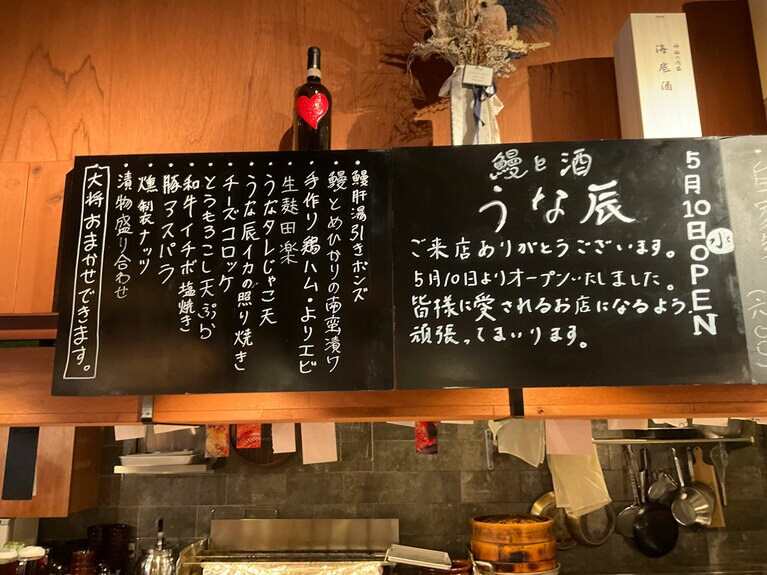 鰻と酒
うな辰
ご来店ありがとうございます。
5月10日よりオープンいたしました。
皆様に愛されるお店になるよう、
頑張ってまいります。
5月10日㊌OPEN
・鰻肝湯引きポンズ
・鰻とめひかりの南蛮漬け
・手作り鶏ハム・よりエビ
・生麩田楽
・うなタレじゃこ天
・うな辰イカの照り焼き
・チーズコロッケ
・とうもろこし天ぷら
・和牛イチボ塩焼き
・豚アスパラ
・燻製ナッツ
・漬物盛り合わせ
大将おまかせできます。
海底酒